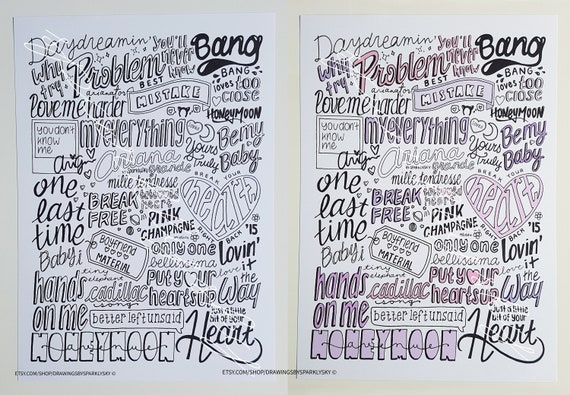 Daydreamin'
you'll never know
Bang BANG
why try?
Problem
arianator
loves too close
BEST MISTAKE
love me harder
HONEYMOON
you don't know me
my everything
Be my Baby
Yours Truly
Ari
Ariana grande
BREAK YOUR heart RIGHT BACK '15
mille tendresse
one last time
BREAK FREE
tattooed heart
PINK CHAMPAGNE
Boyfriend MATERIAL
only one
Lovin' it
Baby i
bellissima
love is the Way
tiny elephant
hands on me
cadillac song
put your hearts up
better left unsaid
just a little bit of your Heart
HONEYMOON
avenue
ETSY.COM/SHOP/DRAWINGSBYSPARKLYSKY ©
Daydreamin'
you'll never know
Bang BANG
why try?
Problem
arianator
loves too close
BEST MISTAKE
love me harder
HONEYMOON
you don't know me
my everything
Be my Baby
Yours Truly
Ari
Ariana grande
BREAK YOUR heart RIGHT BACK '15
mille tendresse
one last time
BREAK FREE
tattooed heart
PINK CHAMPAGNE
Boyfriend MATERIAL
only one
Lovin' it
Baby i
bellissima
love is the Way
tiny elephant
hands on me
cadillac song
put your hearts up
better left unsaid
just a little bit of your Heart
HONEYMOON
avenue
ETSY.COM/SHOP/DRAWINGSBYSPARKLYSKY ©